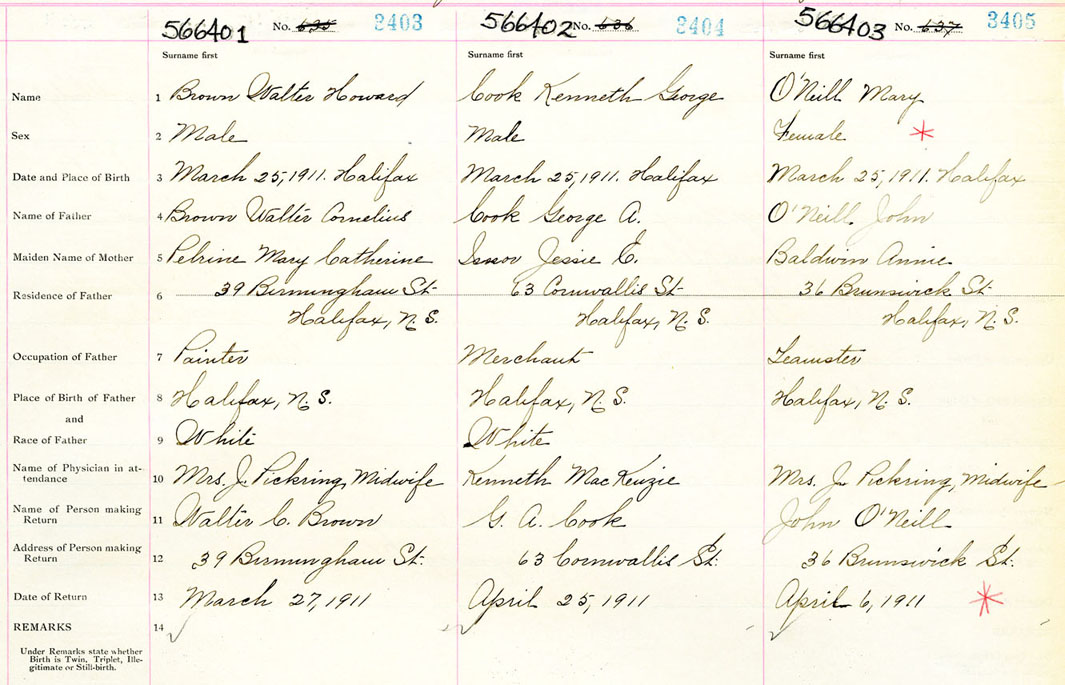 566401 No. 635 3403 566402 No. 636 3404 566403 No. 637 3405
Surname first Surname first Surname first
Name 1 Brown Walter Howard Cook Kenneth George O'Neill Mary
Sex 2 Male Male Female *
Date and Place of Birth 3 March 25, 1911. Halifax March 25, 1911. Halifax March 25, 1911. Halifax
Name of Father 4 Brown Walter Cornelius Cook George A. O'Neill John
Maiden Name of Mother 5 Pelrine Mary Catherine Jessie E. Baldwin Annie
Residence of Father 6 39 Birmingham St. 63 Cornwallis St. 36 Brunswick St.
Halifax, N.S. Halifax, N.S. Halifax, N.S.
Occupation of Father 7 Painter Merchant Teamster
Place of Birth of Father 8 Halifax, N.S. Halifax, N.S. Halifax, N.S.
and
Race of Father 9 White White
Name of Physician in at-
tendance 10 Mrs. J. Pickring, Midwife Kenneth MacKenzie Mrs. J. Pickring, Midwife
Name of Person making
Return 11 Walter C. Brown G. A. Cook John O'Neill
Address of Person making
Return 12 39 Birmingham St. 63 Cornwallis St. 36 Brunswick St.
Date of Return 13 March 27, 1911 April 25, 1911 April 6, 1911 *
REMARKS 14
Under Remarks state whether
Birth is Twin, Triplet, Ille-
gitimate or Still-birth.